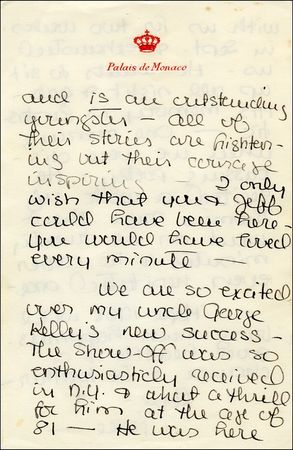 Palais de Monaco
and is an outstanding
youngster — all of
their stories are frighten-
ing but their courage
inspiring — I only
wish that you & Jeff
could have been here —
you would have loved
every minute —
We are so excited
over my uncle George
Kelly's new success —
The Show-Off was so
enthusiasticly received
in N.Y. & what a thrill
for him at the age of
81 — He was here